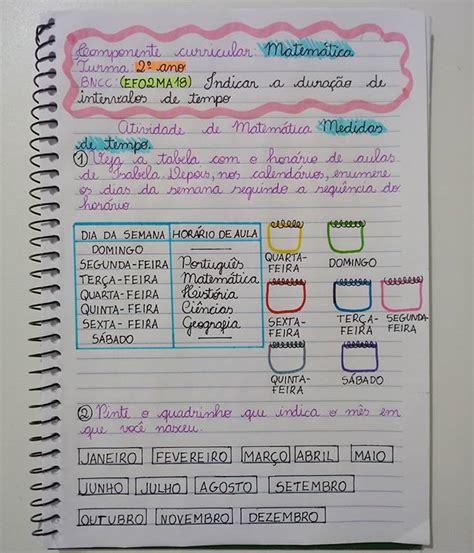 Componente curricular: Matemática
Turma 2º ano
BNCC: (EF02MA18) Indicar a duração de
intervalos de tempo
Atividade de Matemática Medidas
de tempo.
1 Veja a tabela com o horário de aulas
de Isabela. Depois, nos calendários, enumere
os dias da semana seguindo a sequência do
horário
DIA DA SEMANA HORÁRIO DE AULA
DOMINGO
SEGUNDA-FEIRA Português
TERÇA-FEIRA Matemática
QUARTA-FEIRA História
QUINTA-FEIRA Ciências
SEXTA-FEIRA Geografia
SÁBADO
QUARTA-
FEIRA
DOMINGO
SEXTA-
FEIRA
TERÇA-
FEIRA
SEGUNDA-
FEIRA
QUINTA-
FEIRA
SÁBADO
2 Pinte o quadrinho que indica o mês em
que você nasceu.
JANEIRO FEVEREIRO MARÇO ABRIL MAIO
JUNHO JULHO AGOSTO SETEMBRO
OUTUBRO NOVEMBRO DEZEMBRO